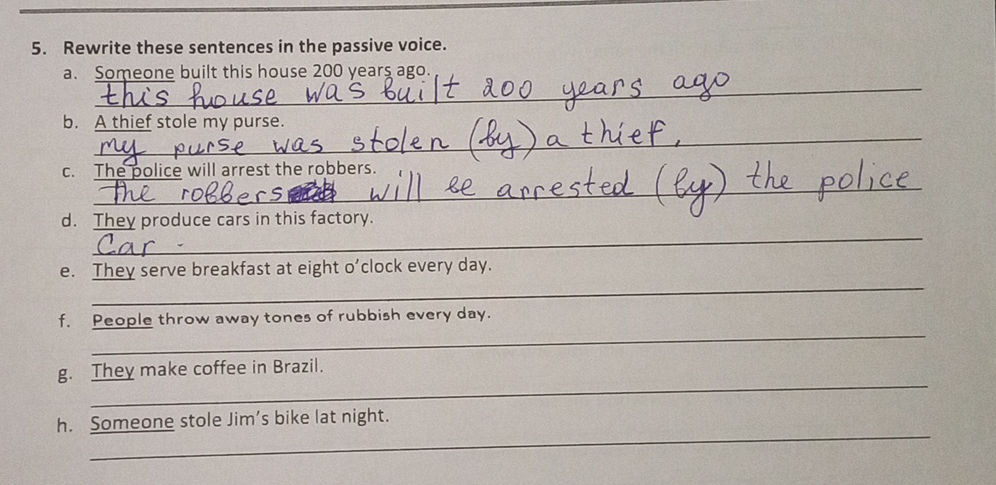 5. Rewrite these sentences in the passive voice.
a. Someone built this house 200 years ago.
this house was built 200 years ago
b. A thief stole my purse.
my purse was stolen (by) a thief.
c. The police will arrest the robbers.
The robbers will be arrested (by) the police
d. They produce cars in this factory.
Car
e. They serve breakfast at eight o'clock every day.
f. People throw away tones of rubbish every day.
g. They make coffee in Brazil.
h. Someone stole Jim's bike lat night.